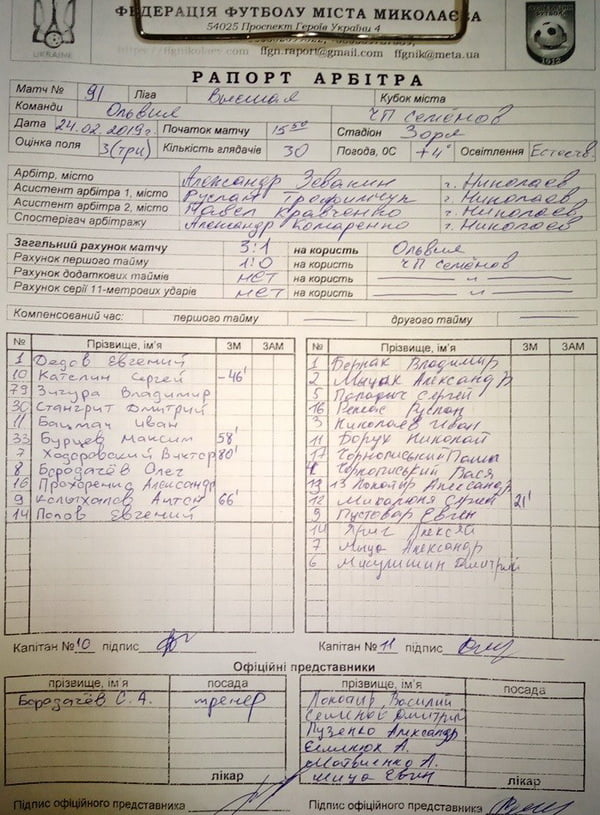 ФЕДЕРАЦІЯ ФУТБОЛУ МІСТА МИКОЛАЄВА
54025 Проспект Героїв Украіни 4
ffgn.raport@gmail.com ffgnik@meta.ua
UKRAINE
1912
РАПОРТ АРБІТРА
Матч № 91 Ліга Высшая Кубок міста
Команди Ольвия ЧП Семёнов
Дата 24.02.2019г. Початок матчу 15 30 Стадіон Заря
Оцінка поля 3(три) Кількість глядачів 30 Погода, 0С +4° Освітлення Естеств.
Арбітр, місто Александр Зевакин г. Николаев
Асистент арбітра 1, місто Руслан Трофимчук г. Николаев
Асистент арбітра 2, місто Павел Кравченко г. Николаев
Спостерігач арбітражу Александр Комаренко г. Николаев
Загальний рахунок матчу 3:1 на користь Ольвия
Рахунок першого тайму 1:0 на користь ЧП Семёнов
Рахунок додаткових таймів нет на користь
Рахунок серії 11-метрових ударів нет на користь
Компенсований час: першого тайму другого тайму
№ Прізвище, ім'я ЗМ ЗАМ № Прізвище, ім'я ЗМ ЗАМ
1 Дедов Евгений 1 Владимир
10 Сергей –46' 2 Мыцак Александр
79 Зигура Владимир 5 Сергей
30 Стангрит Дмитрий 16 Руслан
11 Бацман Иван 3 Николаев Иван
33 Бурцев Максим 58' 11 Борух Николай
7 Ходоровский Виктор 80' 17 Чернописький Паша
8 Бородачёв Олег Вася
16 Прохоренко Александр 13 Александр
9 Антон 66' 12 Сергей 21'
14 Попов Евгений 9 Пустовар Евген
14 Алексей
7 Мица Александр
6 Дмитрий
Капітан № 10 підпис Капітан № 11 підпис
Офіційні представники
прізвище, ім'я посада прізвище, ім'я посада
Бородачёв С. А. тренер Василий
Семенюк Дмитрий
Пузенко Александр
Матвиенко А.
лікар Мица Евген лікар
Підпис офіційного представника Підпис офіційного представника